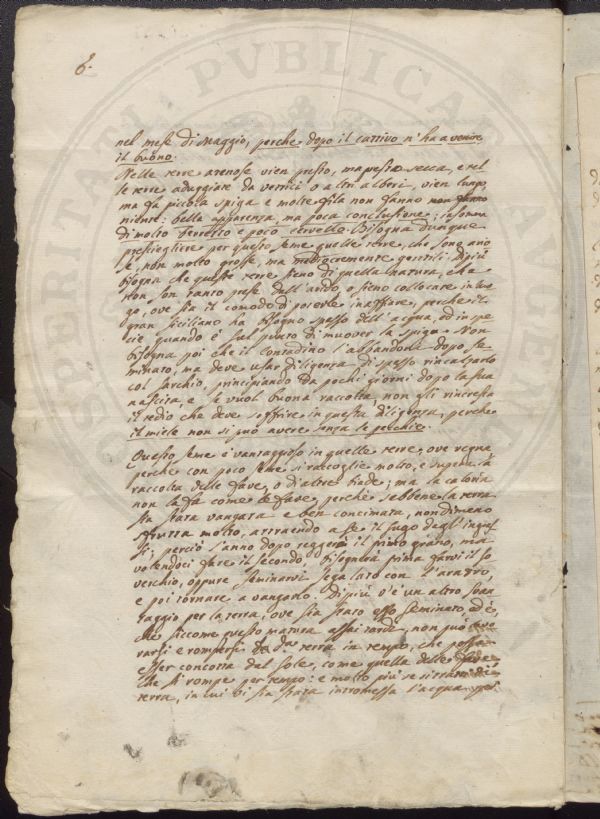 6.
nel mese di Maggio, perche dopo il cattivo n'ha a venire
il buono.
Nelle terre arenose vien presto, ma presto secca, e nel
le terre aduggiate da vernici o altri alberi, vien lungo,
ma fa piccola spiga e molte fila non fanno non fanno
niente: bella apparenza, ma poca conclusione; in somma
di molto berretto e poco cervello. Bisogna dunque
presciegliere per questo seme quelle terre, che sono ario
se, non molto grosse, ma mediocremente gentili. Di più
bisogna che queste terre sieno di quella natura, che
non son tanto prese dall'arido, o sieno collocate in luo
go, ove sia il comodo di poterle inaffiare, perche il
gran siciliano ha bisogno spesso dell'acqua, ed in spe
cie quando è sul punto di muover la spiga. Non
bisogna poi che il contadino l'abbandoni dopo se
minato, ma deve usar diligenza di spesso rincalzarlo
col sarchio, principiando da pochi giorni dopo la sua
nascita, e se vuol buona raccolta, non gli rincresca
il tedio che deve soffrire in questa diligenza, perche
il miele non si può avere senza le pecchie.
Questo seme è vantaggioso in quelle terre, ove regna,
perche con poco seme si raccoglie molto, e supera la
raccolta delle fave, o d'altre biade; ma la caloria
non la fa come le fave, perche sebbene la terra
sia stata vangata e ben concimata, nondimeno
sfrutta molto, attraendo a se il sugo degl'ingras
si; perciò l'anno dopo reggerà il primo grano, ma
volendoci fare il secondo, bisognerà prima farvi il so
verchio, oppure seminarvi segalato con l'aratro,
e poi tornare a vangarlo. Di più v'è un altro svan
taggio per la terra, ove sia stato esso seminato, ed è,
che siccome questo matura assai tardi, non può lavo
rarsi e rompersi la da terra in tempo, che possa
esser concotta dal sole, come quella delle fave,
che si rompe per tempo: e molto più se si tratta di
terra, in cui vi sia stata intromessa l'acqua per